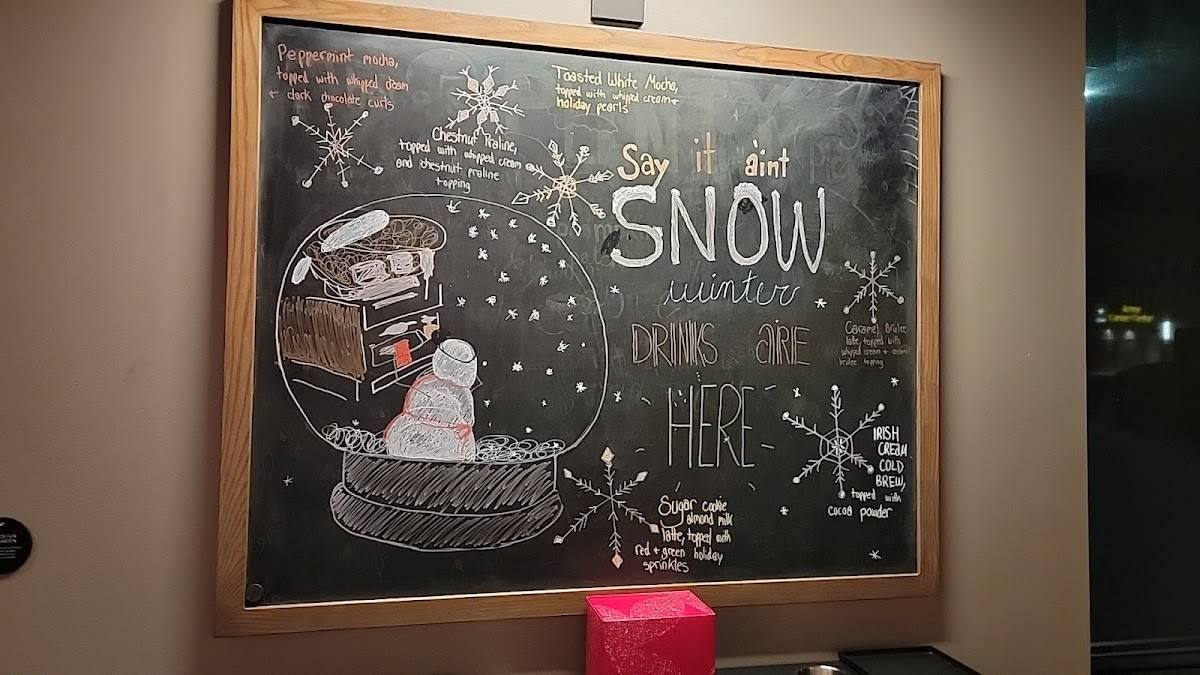 Peppermint mocha,
topped with whipped cream
+ dark chocolate curls
Chestnut Praline,
topped with whipped cream
and chestnut praline
topping
Toasted White Mocha,
topped with whipped cream +
holiday pearls
Say it aint
SNOW
winter
DRINKS ARE
HERE
Caramel Brulee
latte, topped with
whipped cream + caramel
brulee topping
IRISH
CREAM
COLD
BREW,
topped with
cocoa powder
Sugar cookie
almond milk
latte, topped with
red + green holiday
sprinkles